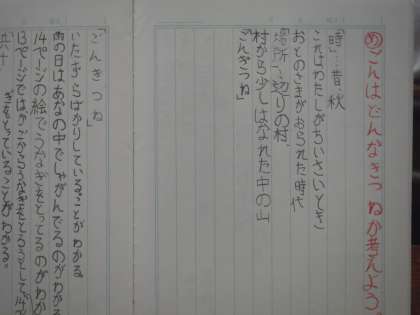 めごんはどんなきつねか考えよう。
時…昔、秋
これはわたしがちいさいとき
おとのさまがおられた時代
場所…辺りの村
村から少しはなれた中の山
ごんぎつね」
「ごんきつね」
いたずらばかりしている。ことがわかる
雨の日はあなの中でしゃがんでるのがわかる
14ページの絵でうなぎをとってるのがわか
13ページでは
ぎをとっていることがわかる。